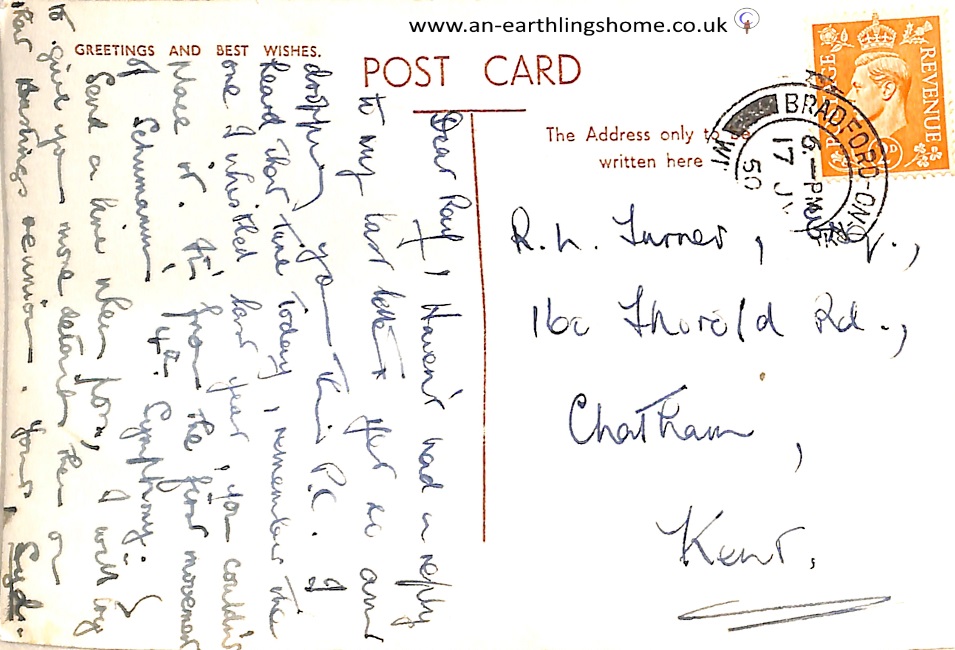 www.an-earthlingshome.co.uk
GREETINGS AND BEST WISHES.
POST CARD
The Address only to be
written here
POSTAGE REVENUE
BRADFORD-ON-
6.-PM
17 JU
50
WI
R. L. Turner, Esq.,
160 Thorold Rd.,
Chatham,
Kent.
Dear Ray, Haven't had a reply
to my last letter yet so am
dropping you this P.C. I
heard that tune today, remember the
one I whistled last year, you couldn't
place it. It's from the first movement
of Schumann's 4th Symphony.
Send a line when poss, I will try
to give you more details then on
that Hastings reunion. Yours, Syd.